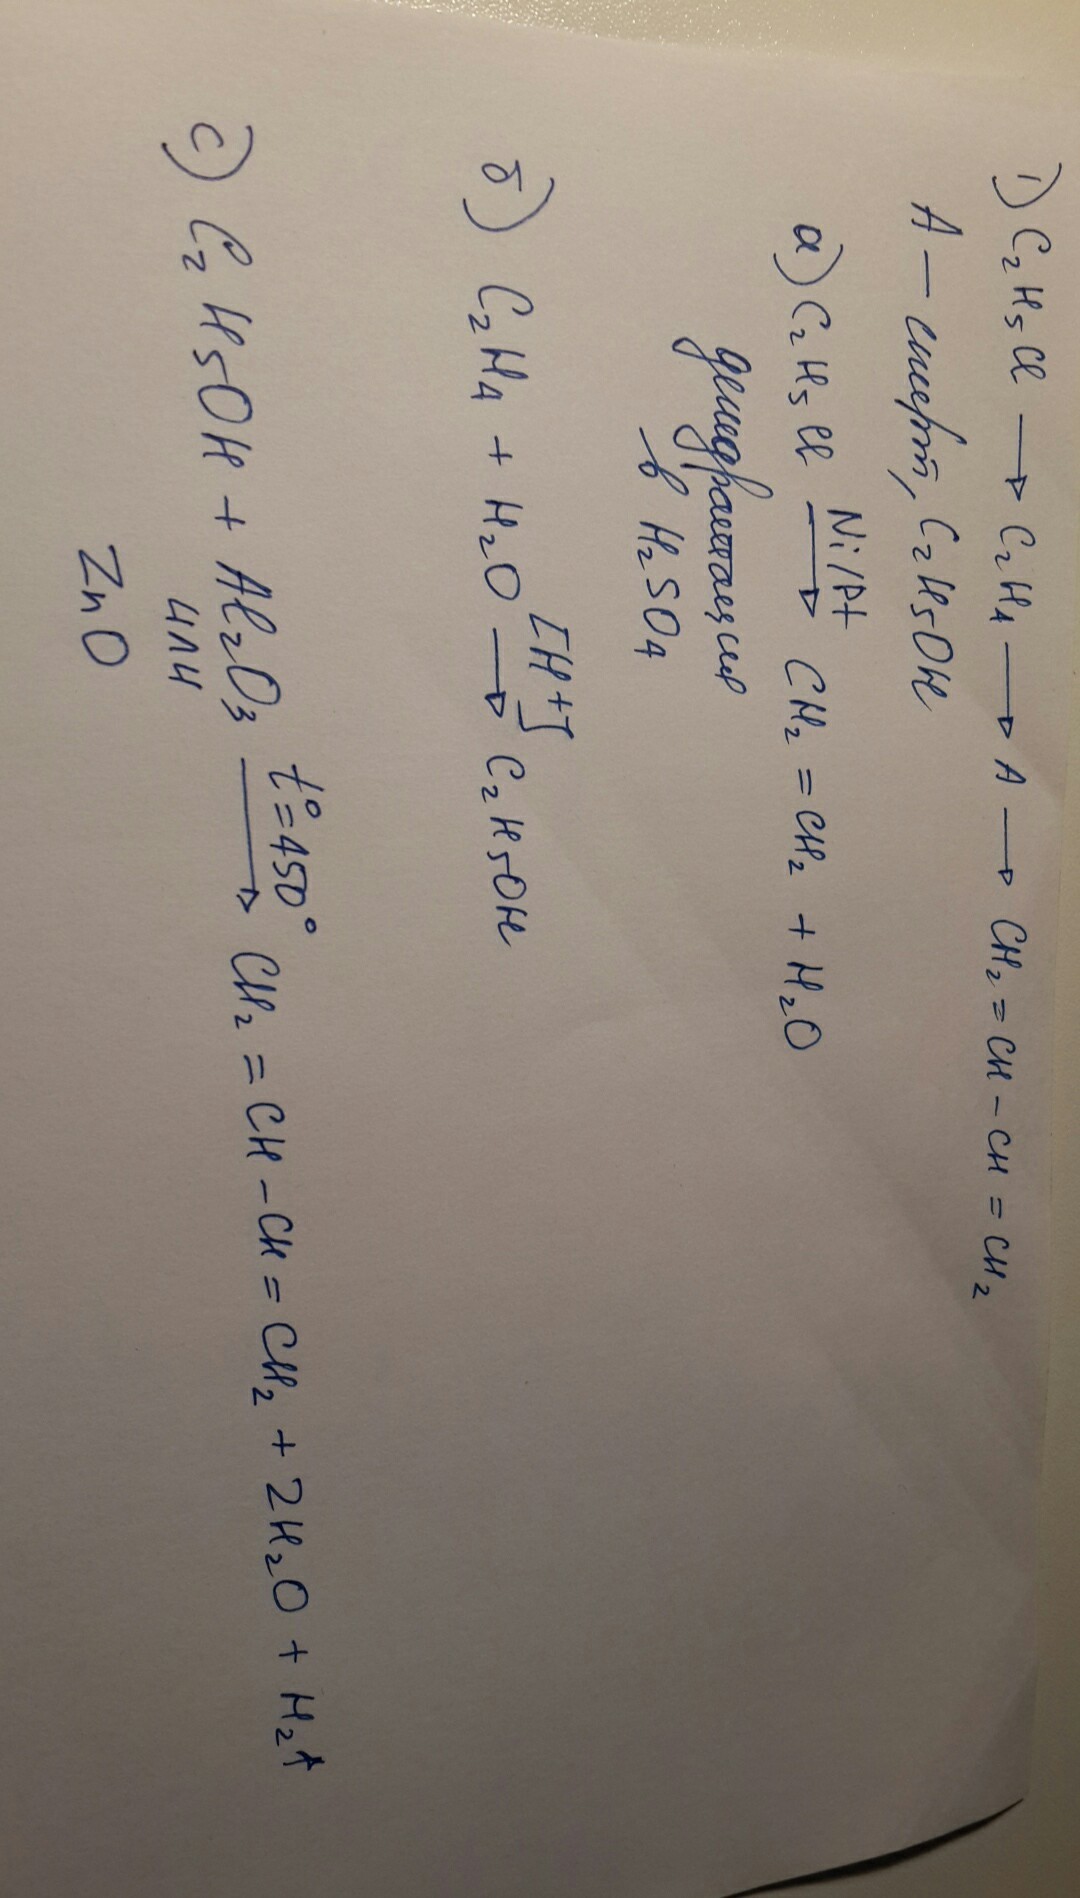 1) C₂H₅Cl → C₂H₄ → A → CH₂=CH-CH=CH₂
A — спирт, C₂H₅OH
а) C₂H₅Cl Ni/Pt → CH₂=CH₂ + H₂O
дегидратация
в H₂SO₄
б) C₂H₄ + H₂O [H+] → C₂H₅OH
с) C₂H₅OH + Al₂O₃ t°=450° → CH₂=CH-CH=CH₂ + 2H₂O + H₂↑
или
ZnO